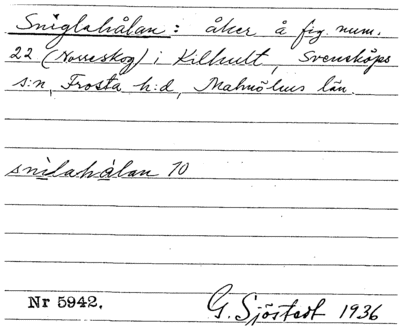 Sniglahålan : åker å fig. num.
22 (Norreskog) i Kilhult, Svensköps
s:n, Frosta h:d, Malmöhus län.
snilahålan 10
Nr 5942.
G. Sjöstedt 1936